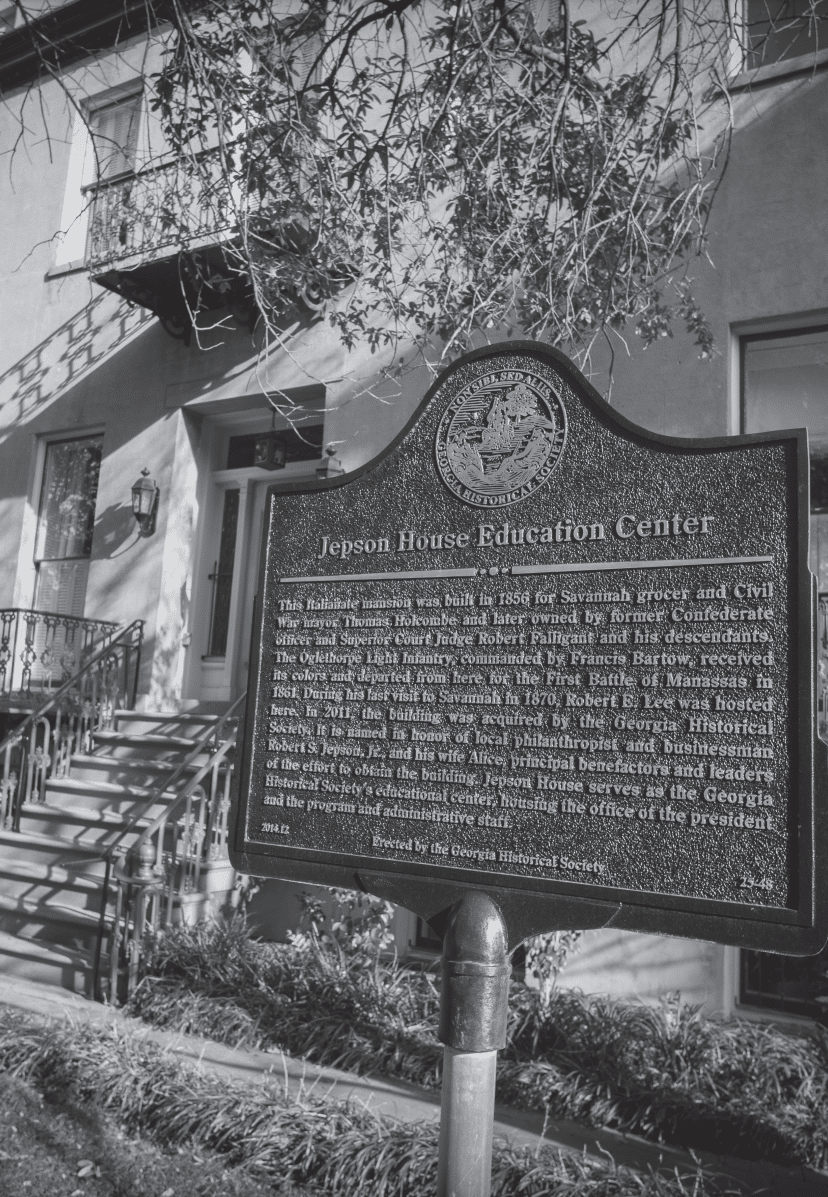 NON SIBI, SED ALIIS
GEORGIA HISTORICAL SOCIETY
Jepson House Education Center
This Italianate mansion was built in 1856 for Savannah grocer and Civil
War mayor Thomas Holcombe and later owned by former Confederate
officer and Superior Court Judge Robert Falligant and his descendants.
The Oglethorpe Light Infantry, commanded by Francis Bartow, received
its colors and departed from here for the First Battle of Manassas in
1861. During his last visit to Savannah in 1870, Robert E. Lee was hosted
here. In 2011, the building was acquired by the Georgia Historical
Society. It is named in honor of local philanthropist and businessman
Robert S. Jepson, Jr., and his wife Alice, principal benefactors and leaders
of the effort to obtain the building. Jepson House serves as the Georgia
Historical Society's educational center, housing the office of the president
and the program and administrative staff.
2014.12
Erected by the Georgia Historical Society
25-48